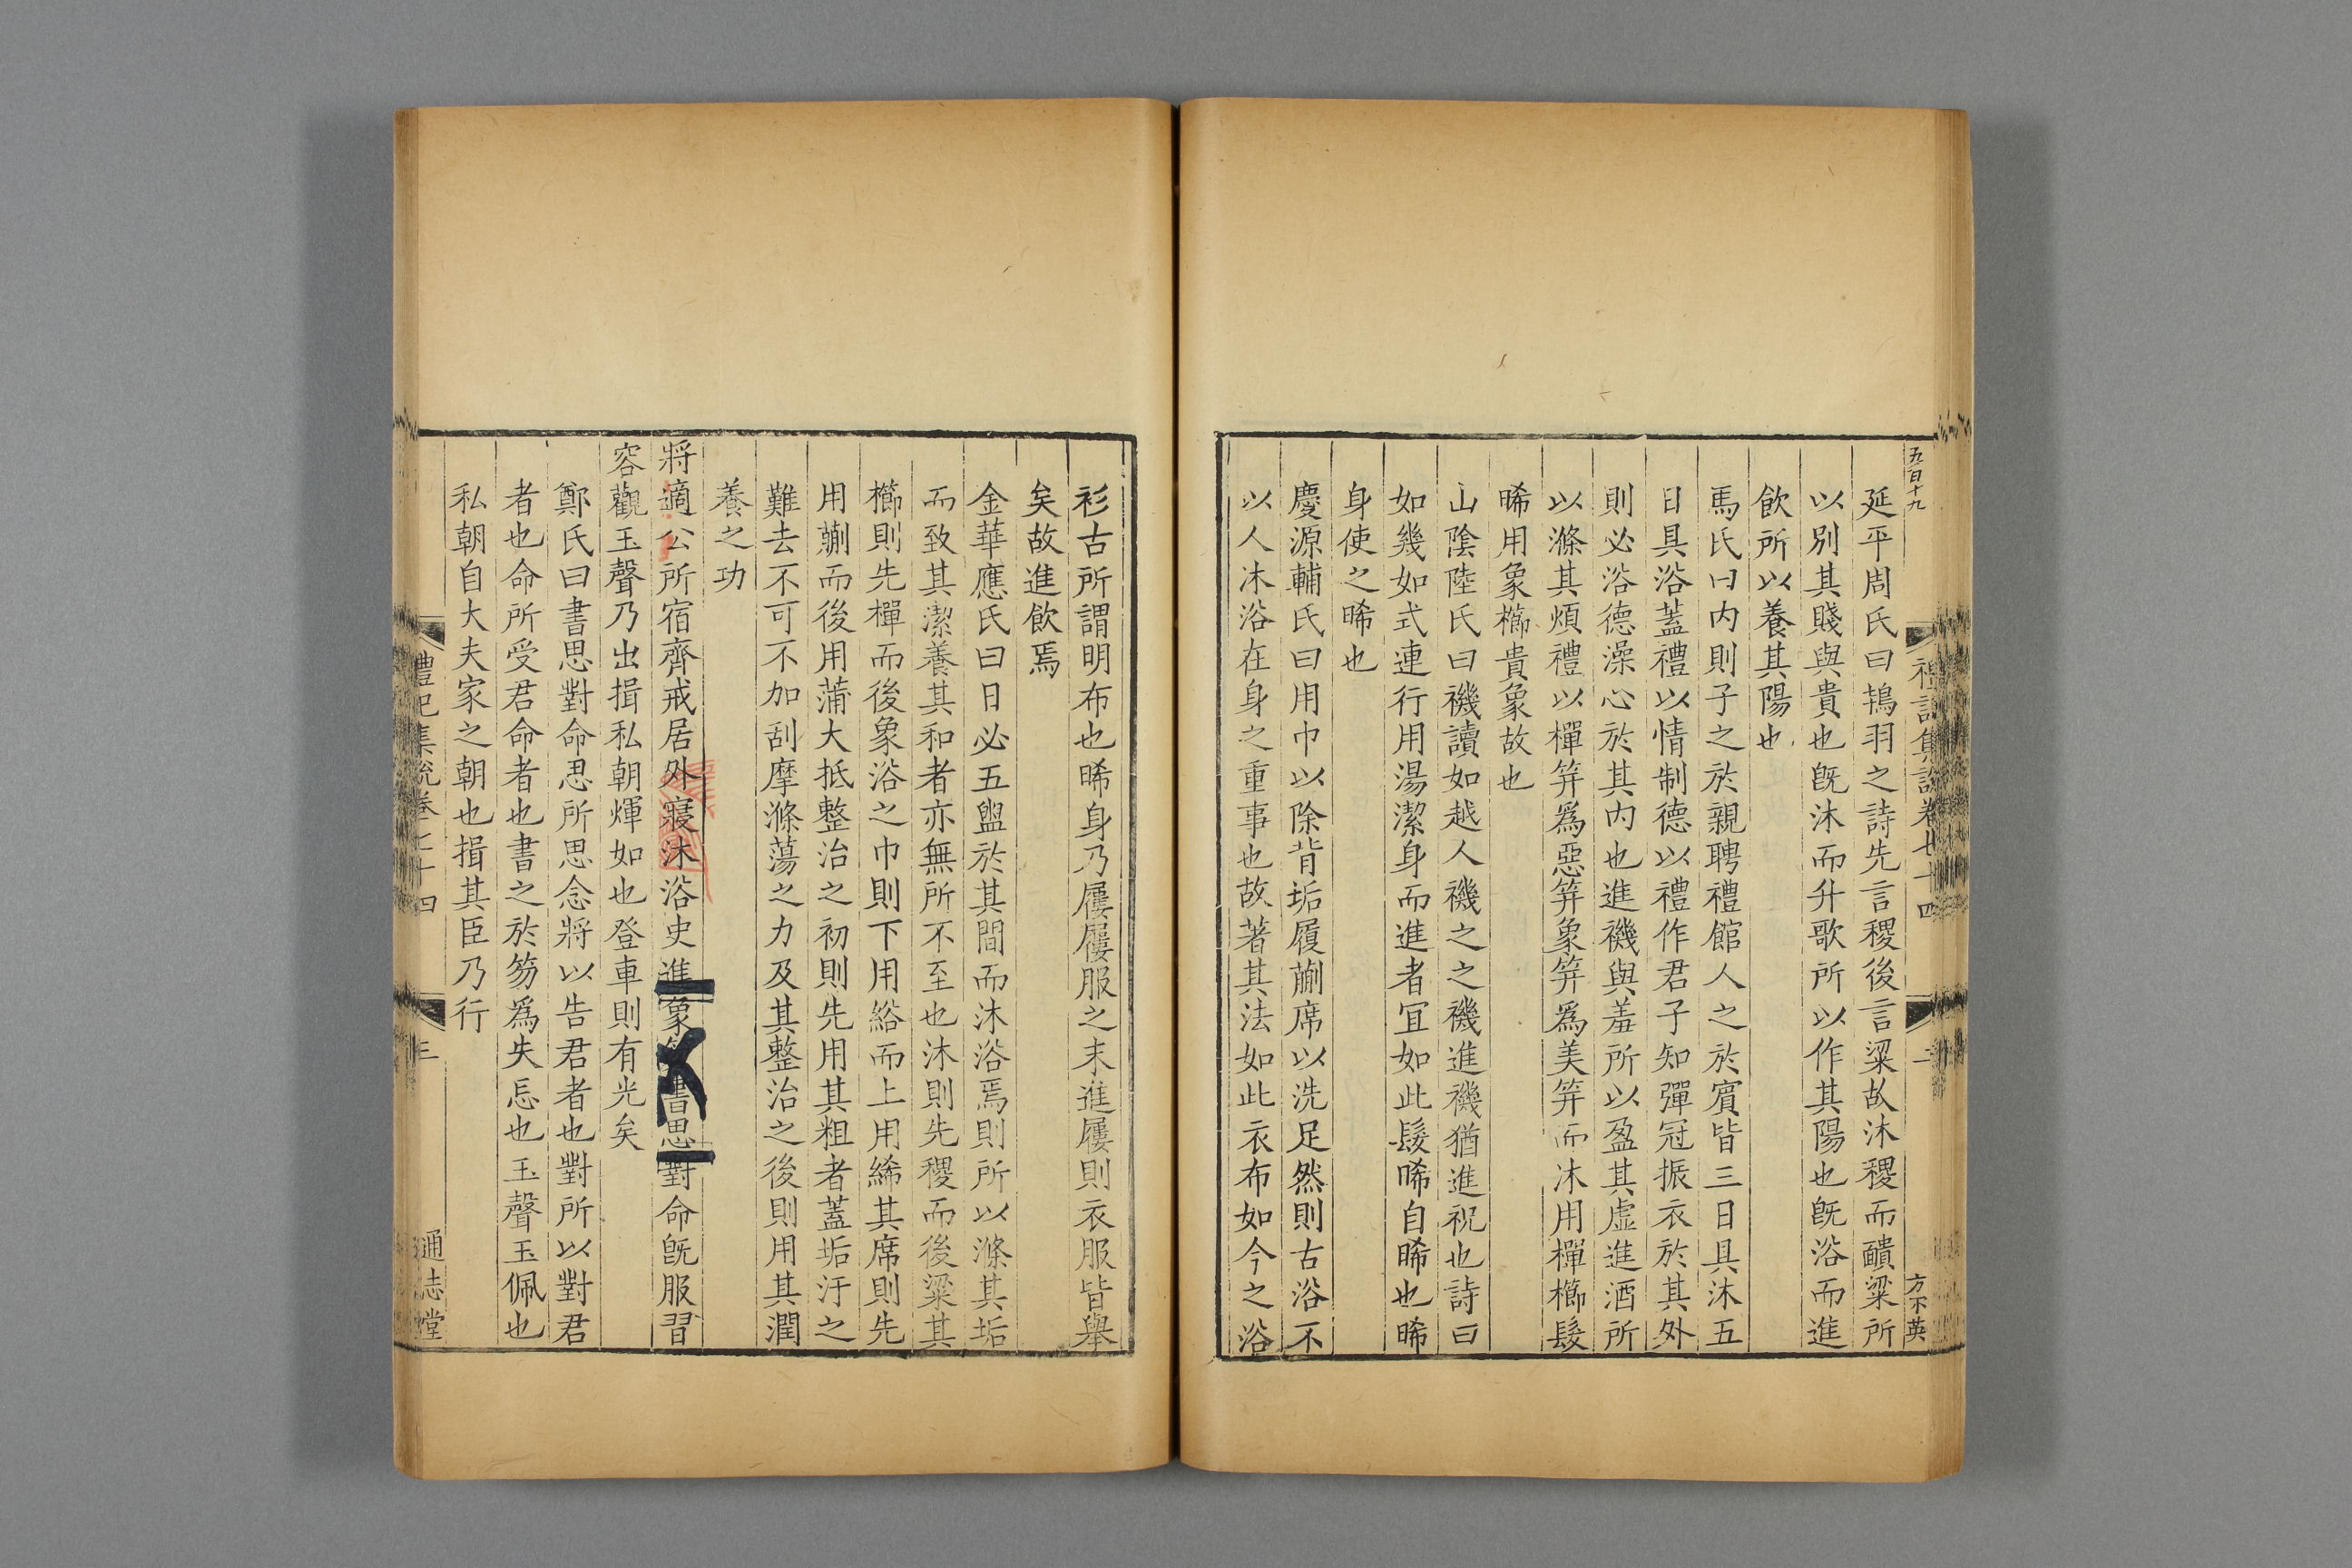 五百十九
延平周氏曰鴇羽之詩先言稷後言粱故沐稷而靧粱所
以別其賤與貴也旣沐而升歌所以作其陽也旣浴而進
飲所以養其陽也
馬氏曰内則子之於親聘禮館人之於賓皆三日具沐五
日具浴蓋禮以情制德以禮作君子知彈冠振衣於其外
則必浴德澡心於其内也進禨與羞所以盈其虛進酒所
以滌其煩禮以樿笄爲惡笄象笄爲美笄而沐用樿櫛髮
晞用象櫛貴象故也
山陰陸氏曰禨讀如越人禨之之禨進禨猶進祝也詩曰
如幾如式連行用湯潔身而進者宜如此髮晞自晞也晞
身使之晞也
慶源輔氏曰用巾以除背垢履蒯席以洗足然則古浴不
以人沐浴在身之重事也故著其法如此衣布如今之浴
禮記集說卷七十四
二
方不英
衫古所謂明布也晞身乃屨屨服之末進屨則衣服皆舉
矣故進飲焉
金華應氏曰日必五盥於其間而沐浴焉則所以滌其垢
而致其潔養其和者亦無所不至也沐則先稷而後粱其
櫛則先樿而後象浴之巾則下用綌而上用絺其席則先
用蒯而後用蒲大抵整治之初則先用其粗者蓋垢汙之
難去不可不加刮摩滌蕩之力及其整治之後則用其潤
養之功
將適公所宿齊戒居外寢沐浴史進象笏書思對命旣服習
容觀玉聲乃出揖私朝煇如也登車則有光矣
鄭氏曰書思對命思所思念將以告君者也對所以對君
者也命所受君命者也書之於笏爲失忘也玉聲玉佩也
私朝自大夫家之朝也揖其臣乃行
禮記集說卷七十四
三
通志堂